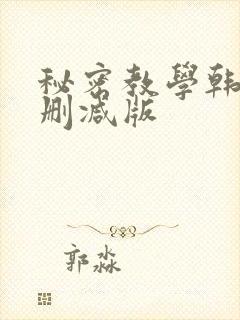 秘密教學韩
删减版
郭淼